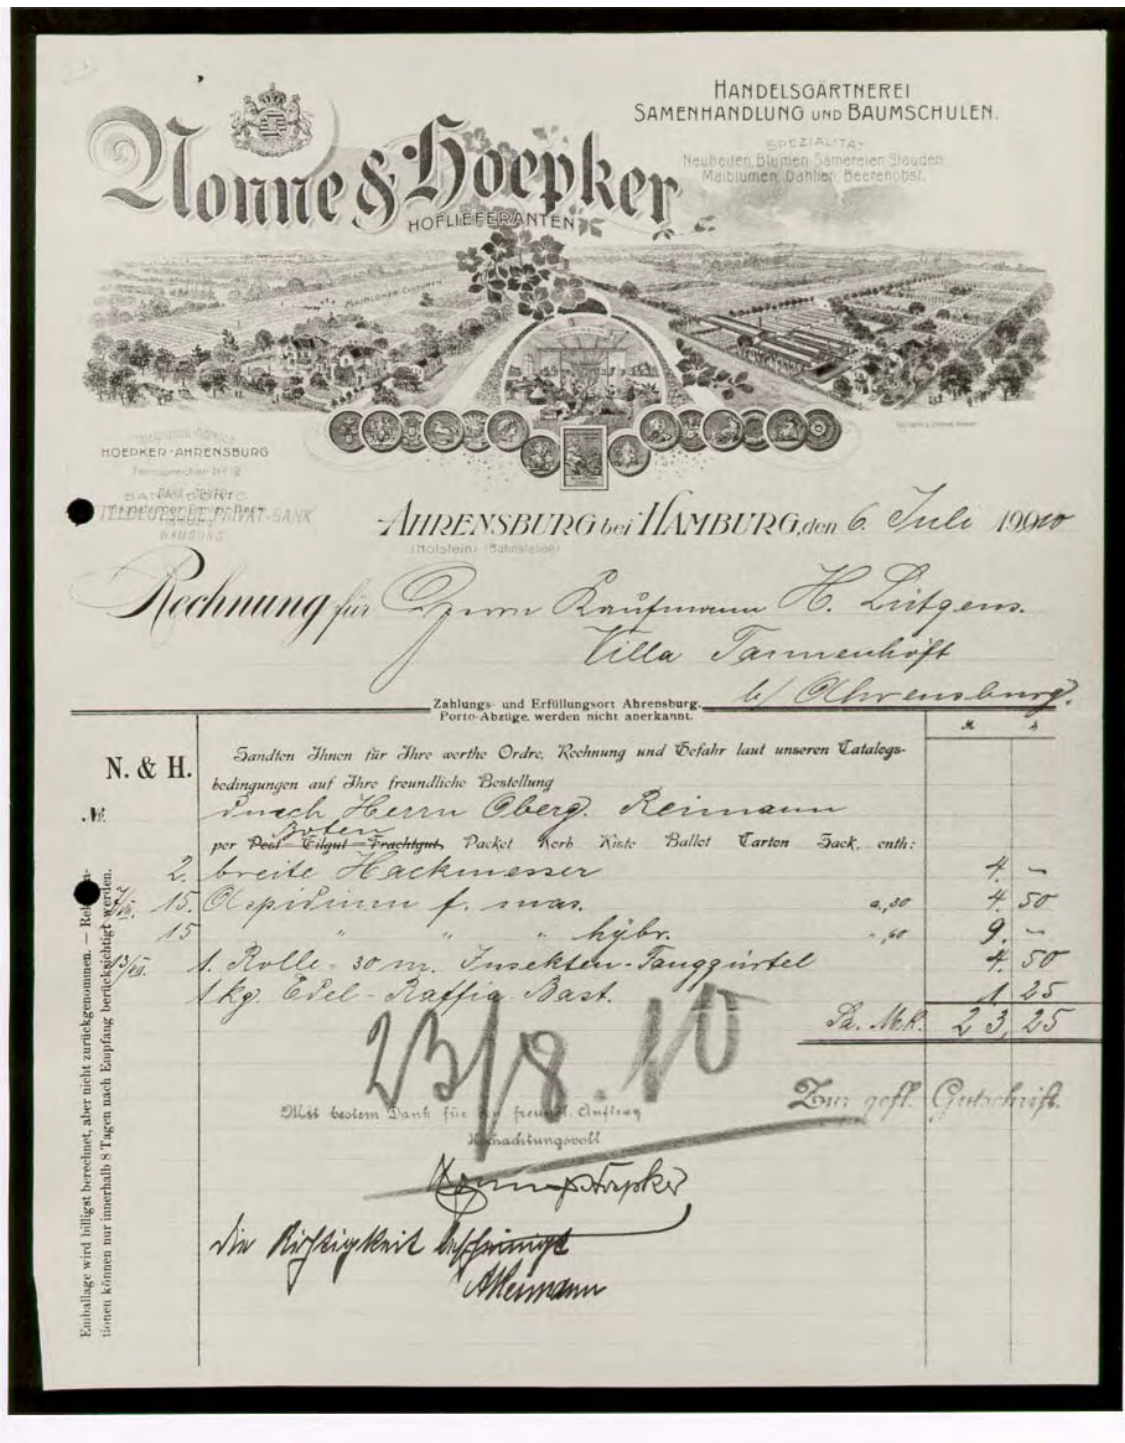 HANDELSGÄRTNEREI
SAMENHANDLUNG UND BAUMSCHULEN.
SPEZIALITÄT
Neuheiten, Blumen Sämereien Stauden
Maiblumen, Dahlien, Beerenobst.
Nonne & Hoepker
HOFLIEFERANTEN
MAIBLUMEN CULTUREN
HOEPKER-AHRENSBURG
Fernsprecher Nº 12
BANK-CONTO
MITTELDEUTSCHE PRIVAT-BANK
AHRENSBURG bei HAMBURG, den 6. Juli 1910
(Holstein) (Bahnstation)
Rechnung für Herrn Kaufmann H. Lütgens.
Villa Tannenhöft
b/ Ahrensburg.
Zahlungs- und Erfüllungsort Ahrensburg.
Porto-Abzüge, werden nicht anerkannt.
N. & H.
Sandten Ihnen für Ihre werthe Ordre, Rechnung und Gefahr laut unseren Catalogs-
bedingungen auf Ihre freundliche Bestellung
№
durch Herrn Oberg. Reimann
Boten
per Post Eilgut Frachtgut, Packet Korb Kiste Ballot Carton Sack, enth:
2. breite Hackmesser 4. –
7/VII. 15. Aspidium f. mas. a, 30 4. 50
15 " " " hybr. ", 60 9. –
13/VII. 1. Rolle = 30 m. Insekten-Fanggürtel 4. 50
1 kg. Edel-Raffia Bast. 1. 25
Sa. Mk. 23,25
23/8.10
Zur gefl. Gutschrift.
Mit bestem Dank für den freundl. Auftrag
Hochachtungsvoll
Nonne & Hoepker
die Richtigkeit bescheinigt
A Reimann
Emballage wird billigst berechnet, aber nicht zurückgenommen. — Reklama-
tionen können nur innerhalb 8 Tagen nach Empfang berücksichtigt werden.